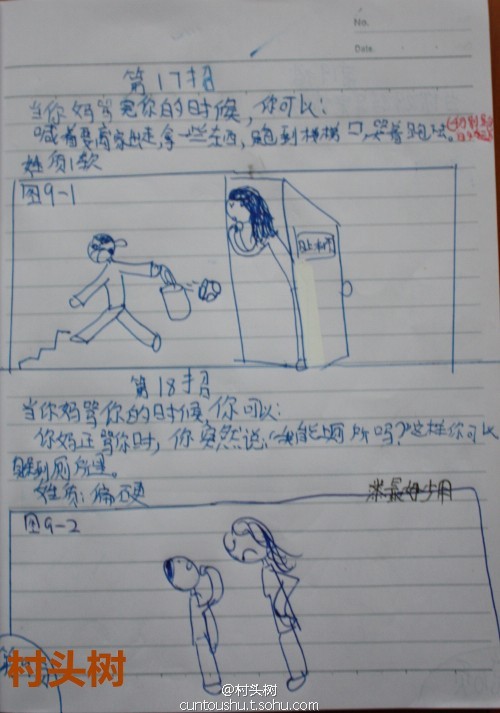 No.
Date.
第17招
当你妈骂完你的时候，你可以：
喊着要离家出走，拿一些东西，跑到楼梯口，哭着跑法。
性质：软
图9-1
第18招
当你妈骂你的时候，你可以：
你妈正骂你时，你突然说：“我能上厕所吗？”这样你可以
躲到厕所里。
性质：偏硬
※最好少用
图9-2
村头树
@村头树
cuntoushu.t.sohu.com